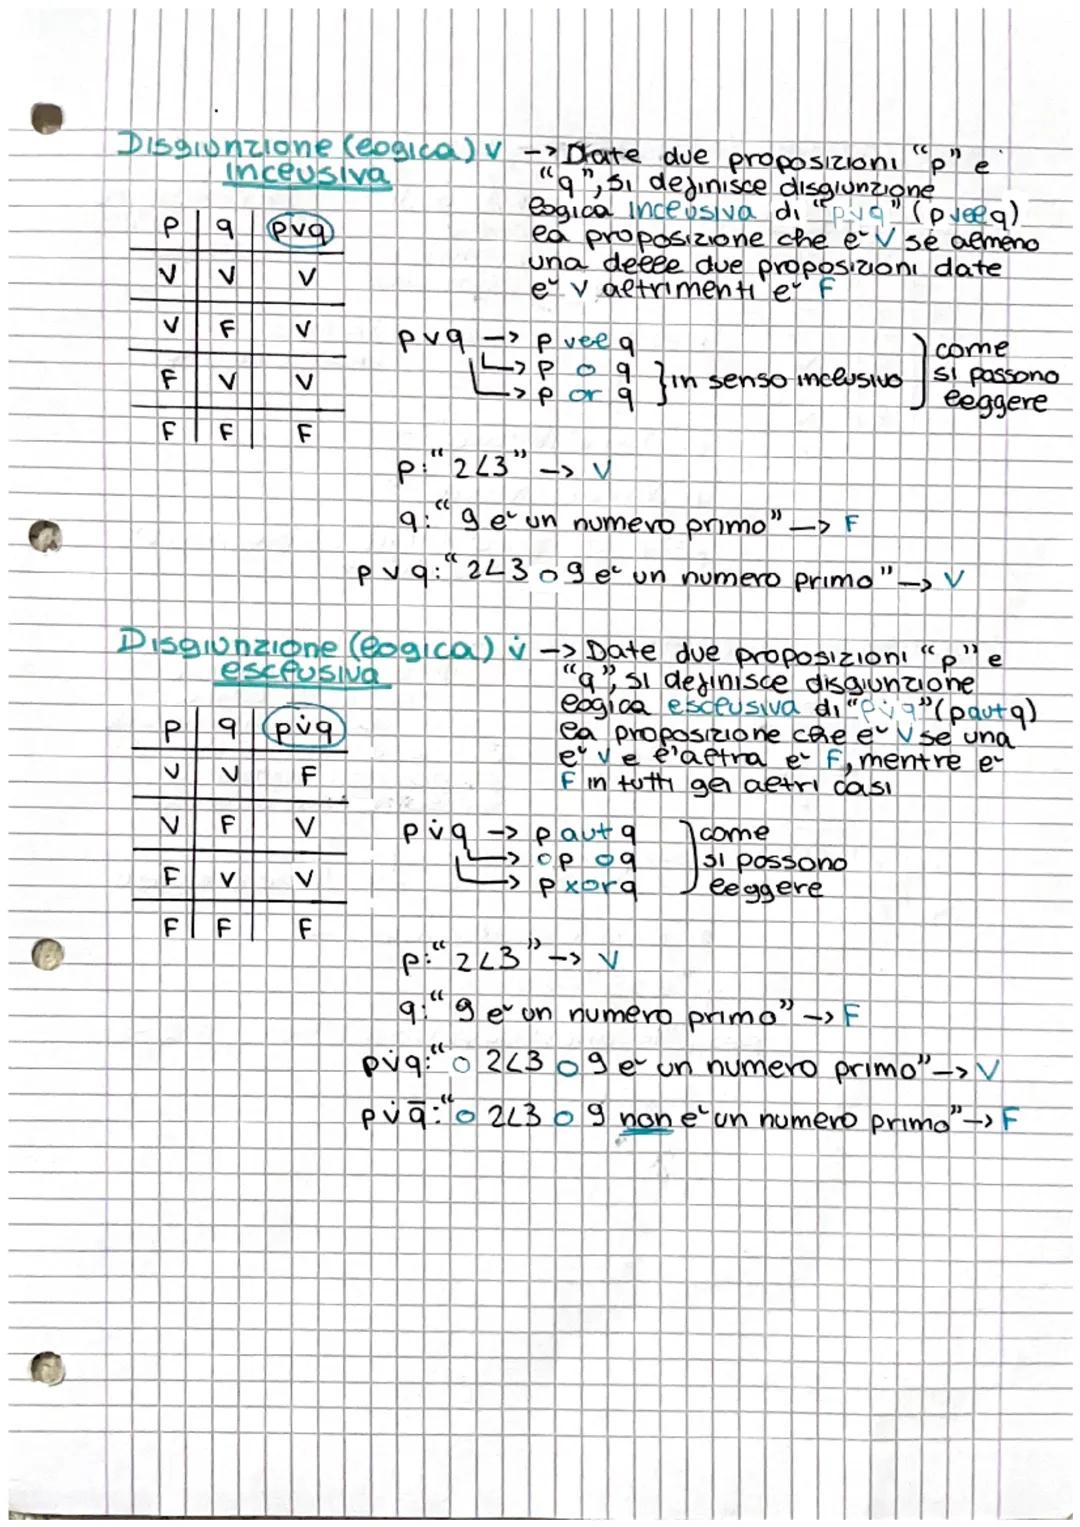 Disgiunzione (logica) v -> Date due proposizioni "p" e
inclusiva
"q", si definisce disgiunzione
logica inclusiva di "pvq" (p vel q)
la proposizione che è V se almeno
una delle due proposizioni date
è V altrimenti è F
p q pvq
V V V
V F V
F V V
F F F
pvq -> p vel q
-> p o q
-> p or q
in senso inclusivo
come
si possono
leggere
p: "2<3" -> V
q: "9 è un numero primo" -> F
pvq: "2<3 o 9 è un numero primo" -> V
Disgiunzione (logica) v̇ -> Date due proposizioni "p" e
esclusiva
"q", si definisce disgiunzione
logica esclusiva di "pv̇q" (p aut q)
la proposizione che è V se una
è V e l'altra è F, mentre è
F in tutti gli altri casi
p q pv̇q
V V F
V F V
F V V
F F F
pv̇q -> p aut q
-> o p o q
-> p xor q
come
si possono
leggere
p: "2<3" -> V
q: "9 è un numero primo" -> F
pv̇q: "o 2<3 o 9 è un numero primo" -> V
pv̇q̅: "o 2<3 o 9 non è un numero primo" -> F